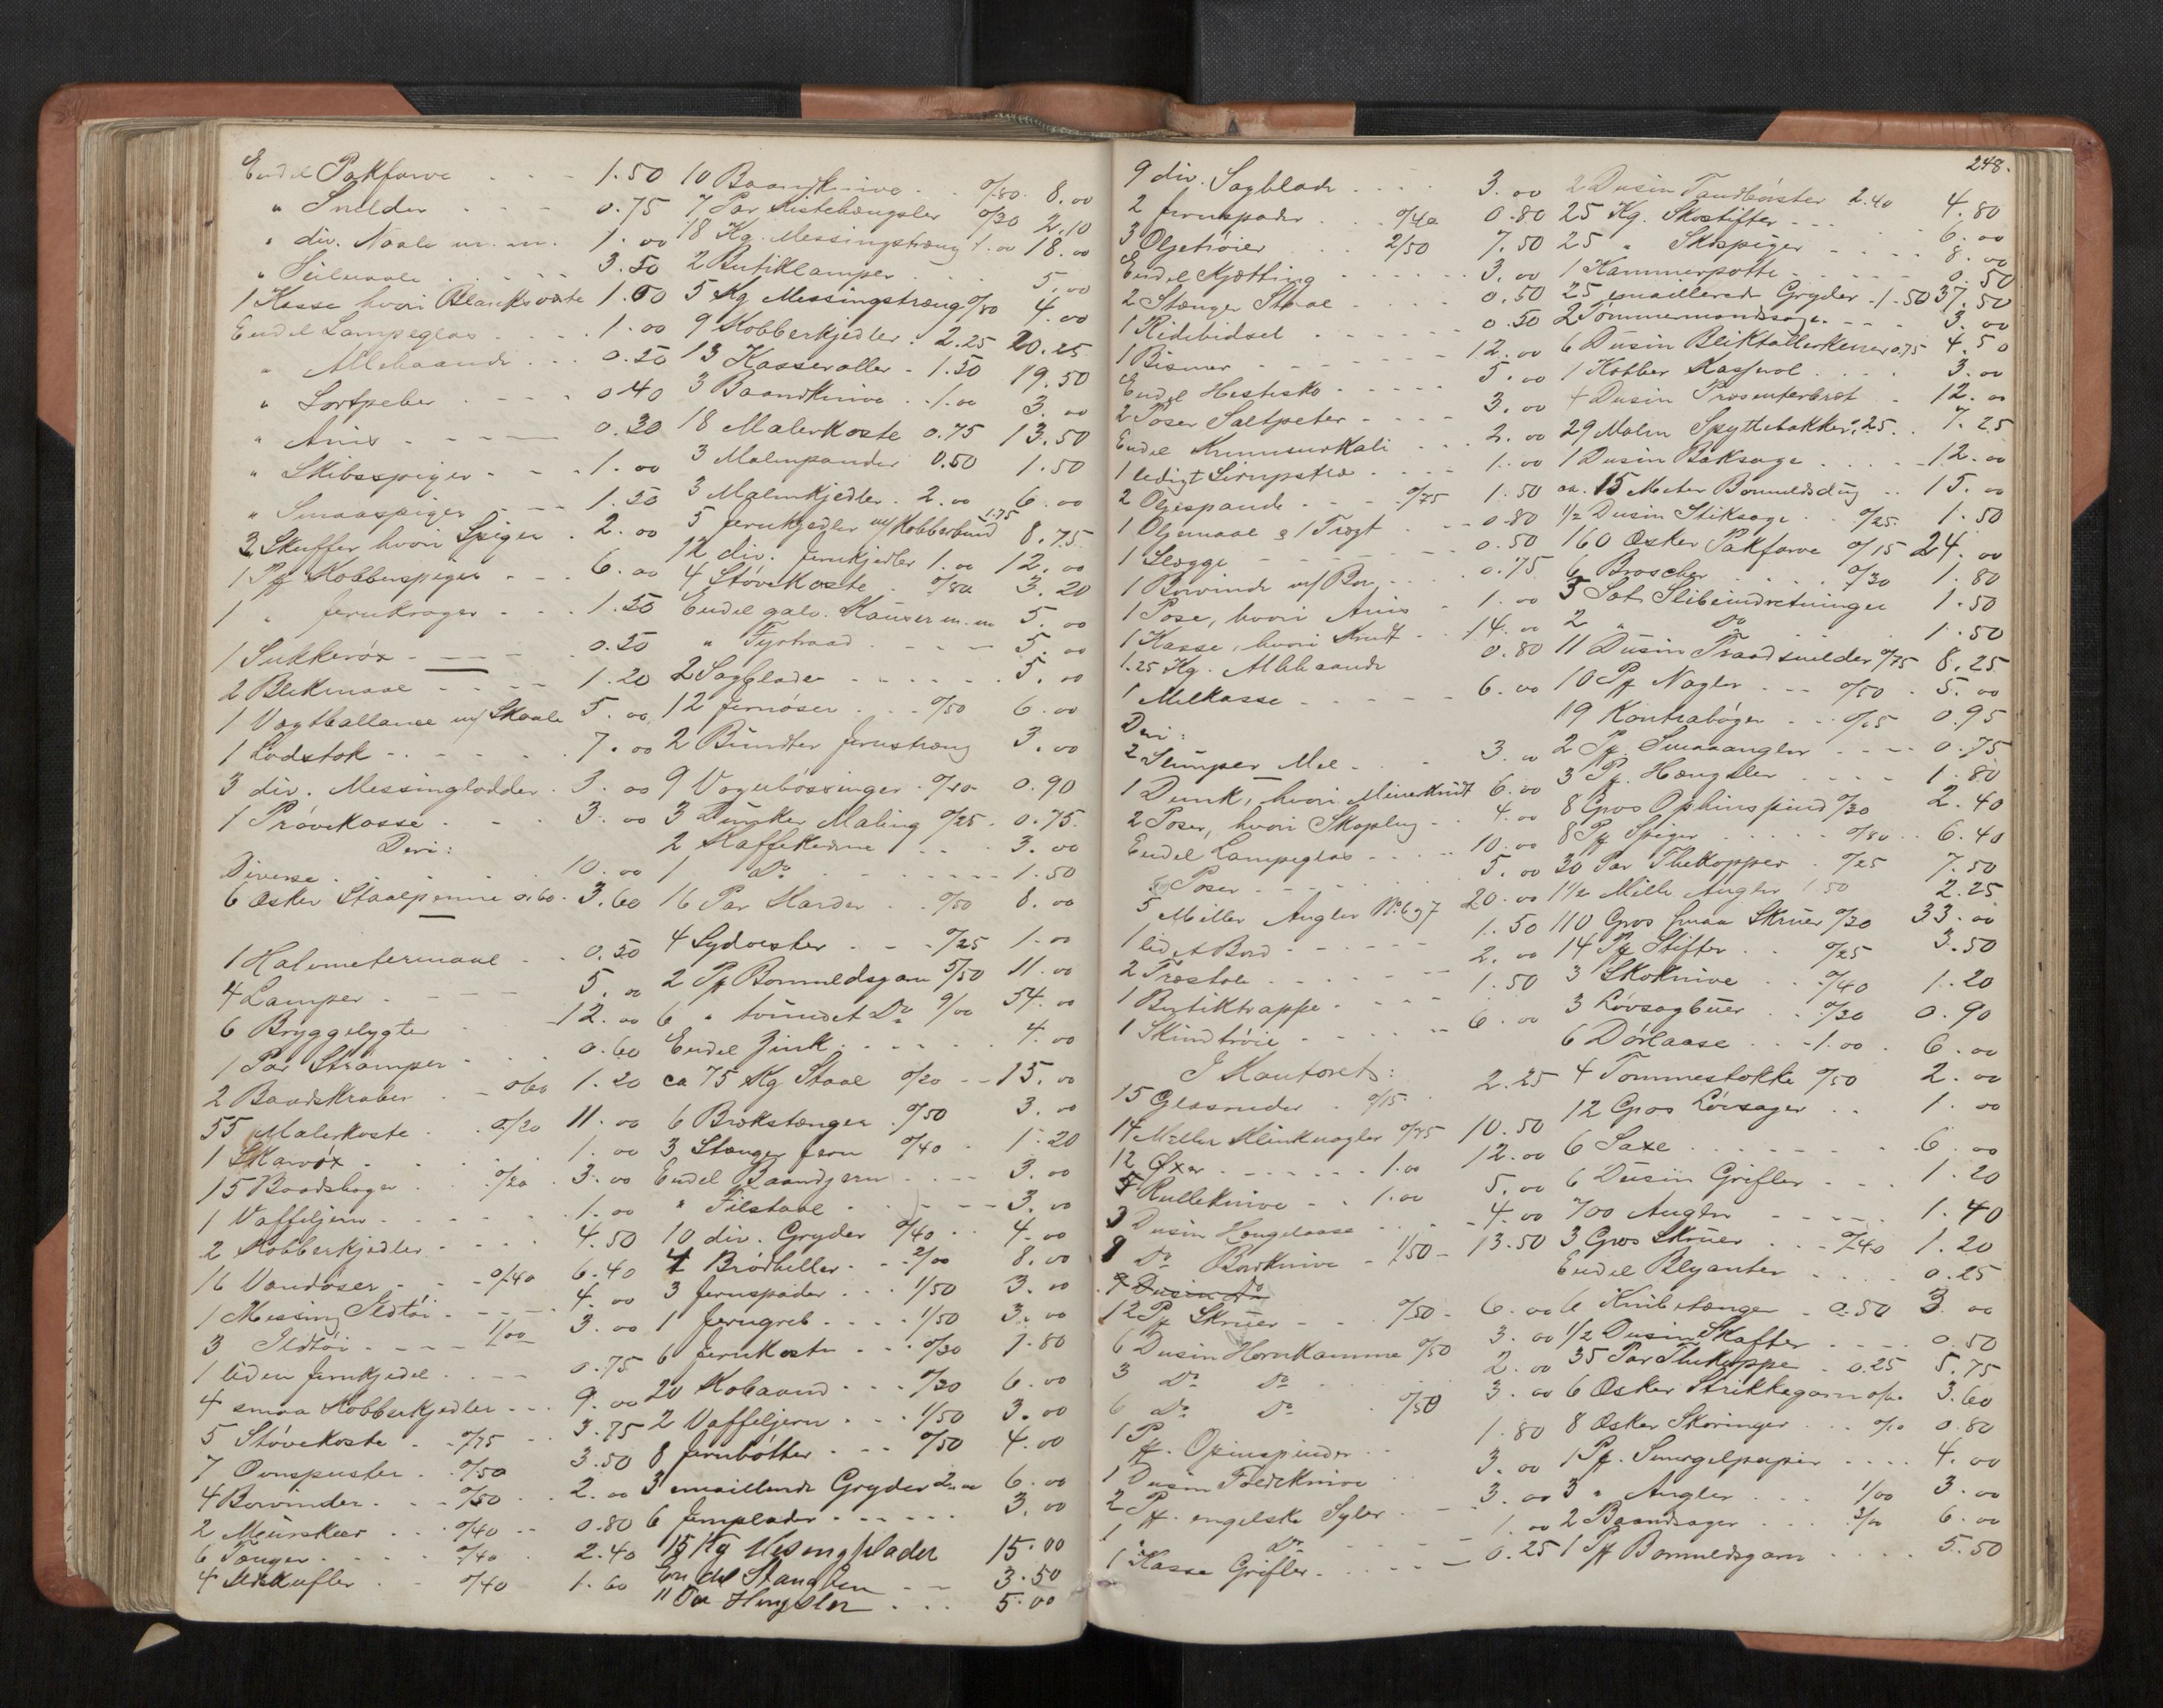 Endel Pakfarve - - - 1.50
" Snelder - - - 0.75
" div. Naale m.m. 1.00
" Seilnaale - - - 3.50
1 Kasse hvori Blanksværte 1.00
Endel Lampeglas - - - 1.00
" Allehaande - - - 0.50
" Sortpeber - - - 0.40
" Anis - - - 0.30
" Skibsspiger - - - 1.00
" Smaaspiger - - - 1.50
3 Skuffer hvori Spiger . 2.00
1 Pk Kobberspiger - - - 6.00
1 " Jernkroger - - - 1.50
1 Sukkerøx - - - 0.50
2 Blekmaal - - - 1.20
1 Vægtballance m/ Skaale 5.00
1 Lodstok - - - 7.00
3 div. Messinglodder . 3.00
1 Prøvekasse - - - 3.00
Deri:
Diverse - - - 10.00
6 Æsker Staalpenne 0.60 - 3.60
1 Halvmetermaal - - 0.50
4 Lamper - - - 5.00
6 Bryggelygter - 12.00
1 Par Strømper - - - 0.60
2 Baadskraber - 0/60 1.20
55 Malerkoste - 0/20 11.00
1 Skarvøx - - - 1.00
15 Baadshager - 0/20 3.00
1 Vaffeljern - - - 1.00
2 Kobberkjedler - - - 4.50
16 Vandøser - - 0/40 6.40
1 Messing Ildtøi - - - 4.00
3 Ildtøi - - - 1/00 3.00
1 liden Jernkjedel - - - 0.75
4 smaa Kobberkjedler - - - 9.00
5 Støvekoste - 0/75 - 3.75
7 Ovnspuster - 0/50 3.50
4 Borvinder - - 0/50 - 2.00
2 Murskeer - - 0/40 - 0.80
6 Tænger - - - 0/40 2.40
4 Ildskufler - - 0/40 1.60
10 Baandknive - - 0/80 8.00
7 Par Kistehængsler 0/30 2.10
18 Kg. Messingstræng 1.00 18.00
2 Butiklamper - - 5.00
5 Kg Messingstræng 0/80 4.00
9 Kobberkjedler . 2.25 20.25
13 Kasseroller - 1.50 19.50
3 Baandknive - 1.00 3.00
18 Malerkoste 0.75 13.50
3 Malmpander 0.50 1.50
3 Malmkjedler . 2.00 6.00
5 Jernkjedler m/ Kobberbund 1.75 8.75
12 div. Jernkjedler 1.00 12.00
4 Støvekoste - 0/80 3.20
Endel galv. Kauser m.m 5.00
" Fyrtraad - - - 5.00
2 Sagblade - - - 5.00
12 Jernøser - - 0/50 6.00
2 Bundter Jernstræng 3.00
9 Vognbøssinger 0/10 0.90
3 Dunker Maling 0/25 - 0.75
2 Kaffekverne - - 3.00
1 Do - - - 1.50
16 Par Karder - - 0/50 8.00
4 Sydvester - - - 0/25 1.00
2 Pk Bomuldsgarn 5/50 11.00
6 " tvundet Do 9/00 54.00
Endel Zink - - - 4.00
ca 75 Kg Staal 0/20 - 15.00
6 Brækstænger 0/50 3.00
3 Stænger Jern 0/40 1.20
Endel Baandjern - - - 3.00
" Filstaal - - - 3.00
10 div. Gryder 0/40 - 4.00
4 Brødheller - - 2/00 8.00
3 Jernspader - - - 1/50 3.00
1 Jerngreb - - - 1/50 3.00
6 Jernkoste - - 0/30 1.80
20 Kobaand - - - 0/30 6.00
2 Vaffeljern - - - 1/50 3.00
8 Jernbøtter - - - 0/50 4.00
3 emaillerede Gryder 2.00 6.00
6 Jernplader - - - 3.00
15 Kg Mesengplader 15.00
En del Stangjern - - 3.50
11 Par Hengsler - - - 5.00
248.
9 div. Sagblade - - - 3.00
2 Jernspader - - 0/40 0.80
3 Oljetrøier - - 2/50 7.50
Endel Kjætting - - - 3.00
2 Stænger Staal - - - 0.50
1 Ridebidsel - - - 0.50
1 Bismer - - - 12.00
Endel Hestesko - - - 5.00
2 Poser Saltpeter - - - 3.00
Endel Krumsurkali - - - 2.00
1 ledigt Sirupsfad - - - 1.00
2 Oljespande - - - 0/75 1.50
1 Oljemaal & 1 Tragt - - - 0.80
1 Slægge - - - 0.50
1 Borvinde m/ Bor - - - 0.75
1 Pose, hvori Anis - 1.00
1 Kasse, hvori Krudt - 14.00
1.25 Kg. Allehaande 0.80
1 Melkasse - - - 6.00
Deri:
2 Slumper Mel - - 3.00
1 Dunk, hvori Minekrudt 6.00
2 Poser, hvori Skoplug - 4.00
Endel Lampeglas - - - 10.00
" Poser - - - 5.00
5 Miller Angler No 6 & 7 20.00
1 lidet Bord - - - 1.50
2 Træstole - - - 2.00
1 Butiktrappe - - - 1.50
1 Skindtrøie - - - 6.00
I Kontoret:
15 Glasruder - 0/15 2.25
14 Miller Klinknagler 0/75 10.50
12 Øxer - - - 1.00 12.00
5 Rulleknive - - 1.00 5.00
3 Dusin Hengelaase - - - 4.00
9 Do Bordknive - 1/50 - 13.50
9 Dusin Do
12 Pk Skruer - - 0/50 - 6.00
6 Dusin Hornkamme 0/50 3.00
3 Do Do - 2.00
6 Do Do - 0/50 3.00
1 Pk. Opinspinder - - 1.80
1 Dusin Foldeknive - 3.00
2 Pk. engelske Syler - - 3.00
1 " Do - - - 1.00
1 Kasse Grifler - - - 0.25
2 Dusin Tandbørster 2.40 4.80
25 Kg. Skostifter - - - 6.00
25 " Skospiger - - - 8.00
1 Kammerpotte - - - 0.50
25 emaillerede Gryder - 1.50 37.50
2 Tømmermandssage - - - 3.00
6 Dusin Bliktallerkener 0.75 4.50
1 Kobber Kasserol - - - 3.00
4 Dusin Præsenterbret - 12.00
29 Malm Spyttebakker 0.25 . 7.25
1 Dusin Baksage - - - 12.00
ca. 15 Meter Bomuldsdug - - 15.00
1/2 Dusin Stiksage - 0/25 1.50
160 Æsker Pakfarve 0/15 24.00
6 Broscher - - - 0/30 1.80
3 Sæt Slibeindretninger 1.50
2 " Do 1.50
11 Dusin Traadsnelder 0/75 8.25
10 Pk Nagler - - - 0/50 - 5.00
19 Kontrabøger - - 0/05 0.95
2 Pk. Smaaangler - - - 0.75
3 Pk. Hængsler - - - 1.80
8 Gros Ophinspind 0/30 2.40
8 Pk Spiger - - - 0/80 - 6.40
30 Par Thekopper - 0/25 7.50
1 1/2 Mille Angler 1.50 2.25
110 Gros smaa Skruer 0/30 33.00
14 Pk Stifter - - 0/25 3.50
3 Skoknive - - 0/40 1.20
3 Løvsagbuer - - 0/30 0.90
6 Dørlaase - - - 1.00 - 6.00
4 Tommestokke 0/50 2.00
12 Gros Løvsager - - 1.00
6 Saxe - - - 6.00
6 Dusin Grifler - - - 1.20
700 Angler - - - 1.40
3 Gros Skruer - - - 0/40 1.20
Endel Blyanter - - - 0.25
6 Knibetænger - 0.50 3.00
1/2 Dusin Skafter - - - 0.50
35 Par Thekoppe - 0.25 5.75
6 Æsker Strikkegarn 0/60 3.60
8 Æsker Skoringer - - - 0/10 0.80
1 Pk. Smergelpapir - - - 4.00
3 " Angler - - - 1/00 3.00
2 Baandsager - - - 3/00 6.00
1 Pk Bomuldsgarn - - - 5.50